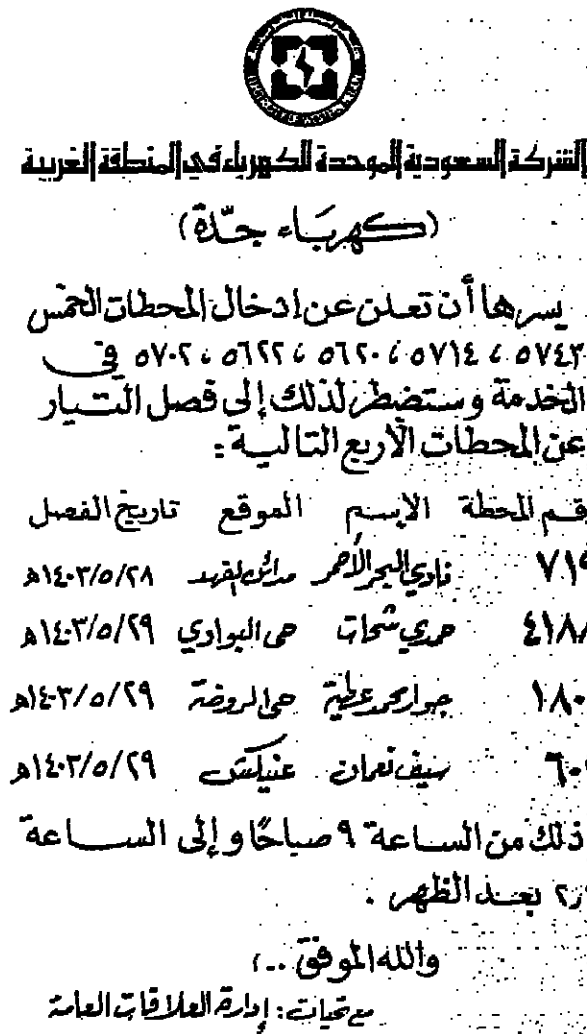 الشركة السعودية الموحدة للكهرباء في المنطقة الغربية
(كهرباء جدّة)
يسرها أن تعلن عن ادخال المحطات الخمس
٥٧٤٣ ، ٥٧١٤ ، ٥٦٢٠ ، ٥٦٢٢ ، ٥٧٠٢ في
الخدمة وستضطر لذلك إلى فصل التيار
عن المحطات الأربع التالية :
رقم المحطة الاسم الموقع تاريخ الفصل
نادي البحر الأحمر مدائن الفهد ١٤٠٣/٥/٢٨هـ
٤١٨٨ حمدي شحات حى البوادي ١٤٠٣/٥/٢٩هـ
١٨٠ جوار محمد عطية حى الروضة ١٤٠٣/٥/٢٩هـ
سيف نعمان عنيكش ١٤٠٣/٥/٢٩هـ
ذلك من الساعة ٩ صباحًا و إلى الساعة
بعد الظهر .
والله الموفق ..،
مع تحيات : إدارة العلاقات العامة